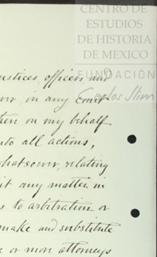 CENTRO DE
ESTUDIOS
DE HISTORIA
DE MEXICO
FUNDACIÓN
Carlos Slim
justices officer and
or in any Court
then on my behalf
do all actions,
whatsoever, relating
it any matter in
to arbitration or
make and substitute
or more attorneys